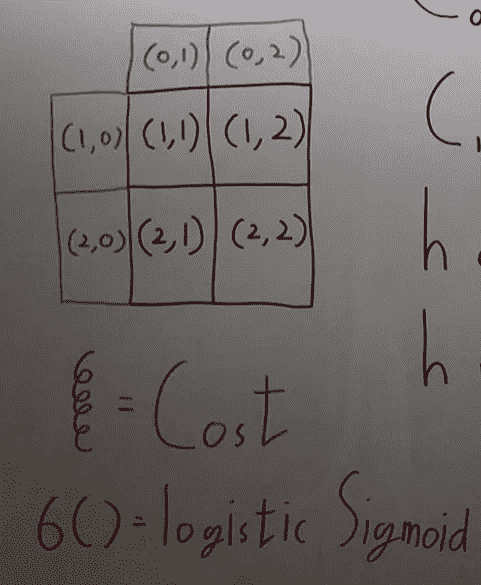 (0,1) (0,2)
(1,0) (1,1) (1,2)
(2,0) (2,1) (2,2)
h
h
ξ = Cost
6() = logistic Sigmoid